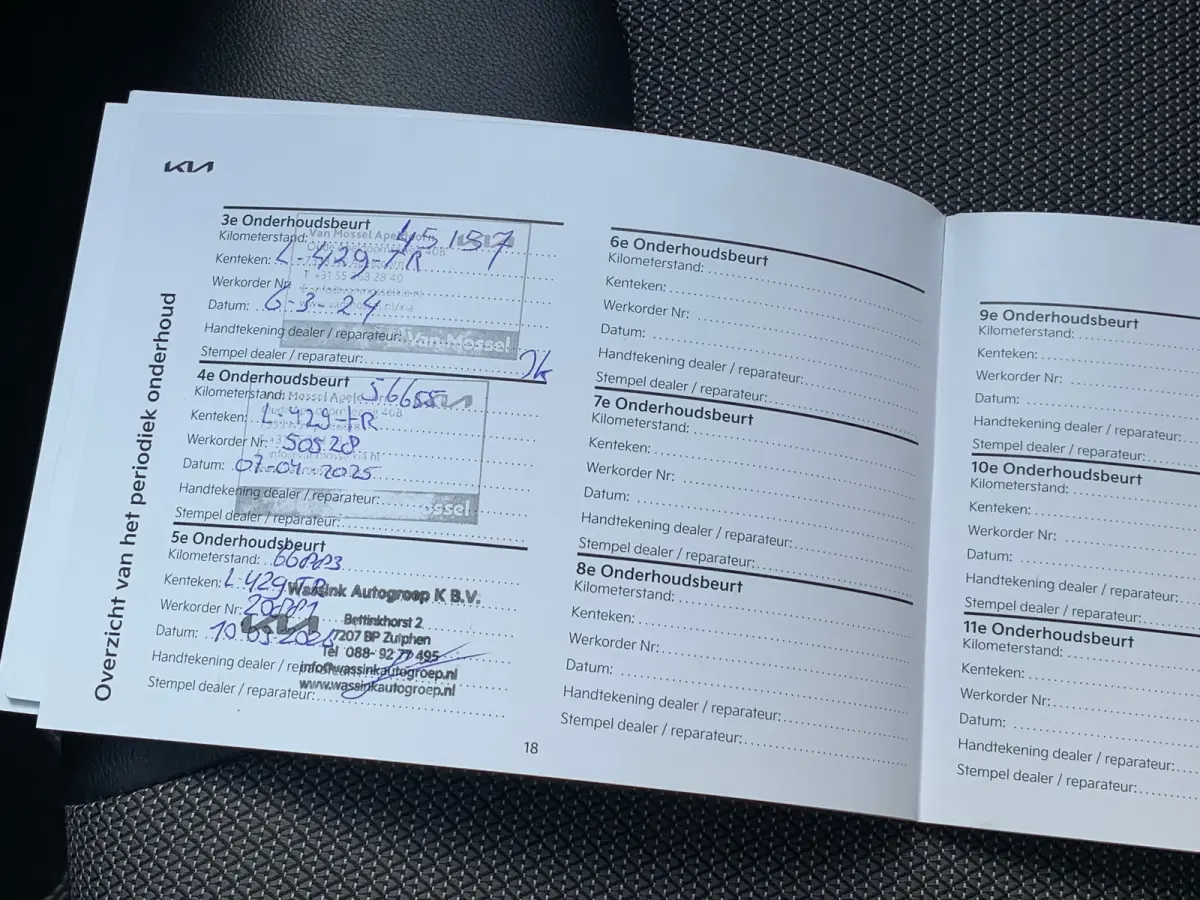 KIA
Overzicht van het periodiek onderhoud
3e Onderhoudsbeurt
Kilometerstand: 45157
Kenteken: L-429-TR
Werkorder Nr:
Datum: 6-3-24
Handtekening dealer / reparateur:
Van Mossel
Stempel dealer / reparateur:
4e Onderhoudsbeurt
Kilometerstand: 56655
Kenteken: L-429-TR
Werkorder Nr: 50528
Datum: 07-04-2025
Handtekening dealer / reparateur:
Stempel dealer / reparateur:
5e Onderhoudsbeurt
Kilometerstand:
Kenteken: L-429-TR
Wassink Autogroep K B.V.
Werkorder Nr:
KIA
Bettinkhorst 2
7207 BP Zutphen
Datum:
Tel 088- 92 77 495
Handtekening dealer / reparateur:
info@wassinkautogroep.nl
www.wassinkautogroep.nl
Stempel dealer / reparateur:
18
6e Onderhoudsbeurt
Kilometerstand:
Kenteken:
Werkorder Nr:
Datum:
Handtekening dealer / reparateur:
Stempel dealer / reparateur:
7e Onderhoudsbeurt
Kilometerstand:
Kenteken:
Werkorder Nr:
Datum:
Handtekening dealer / reparateur:
Stempel dealer / reparateur:
8e Onderhoudsbeurt
Kilometerstand:
Kenteken:
Werkorder Nr:
Datum:
Handtekening dealer / reparateur:
Stempel dealer / reparateur:
9e Onderhoudsbeurt
Kilometerstand:
Kenteken:
Werkorder Nr:
Datum:
Handtekening dealer / reparateur:
Stempel dealer / reparateur:
10e Onderhoudsbeurt
Kilometerstand:
Kenteken:
Werkorder Nr:
Datum:
Handtekening dealer / reparateur:
Stempel dealer / reparateur:
11e Onderhoudsbeurt
Kilometerstand:
Kenteken:
Werkorder Nr:
Datum:
Handtekening dealer / reparateur:
Stempel dealer / reparateur: